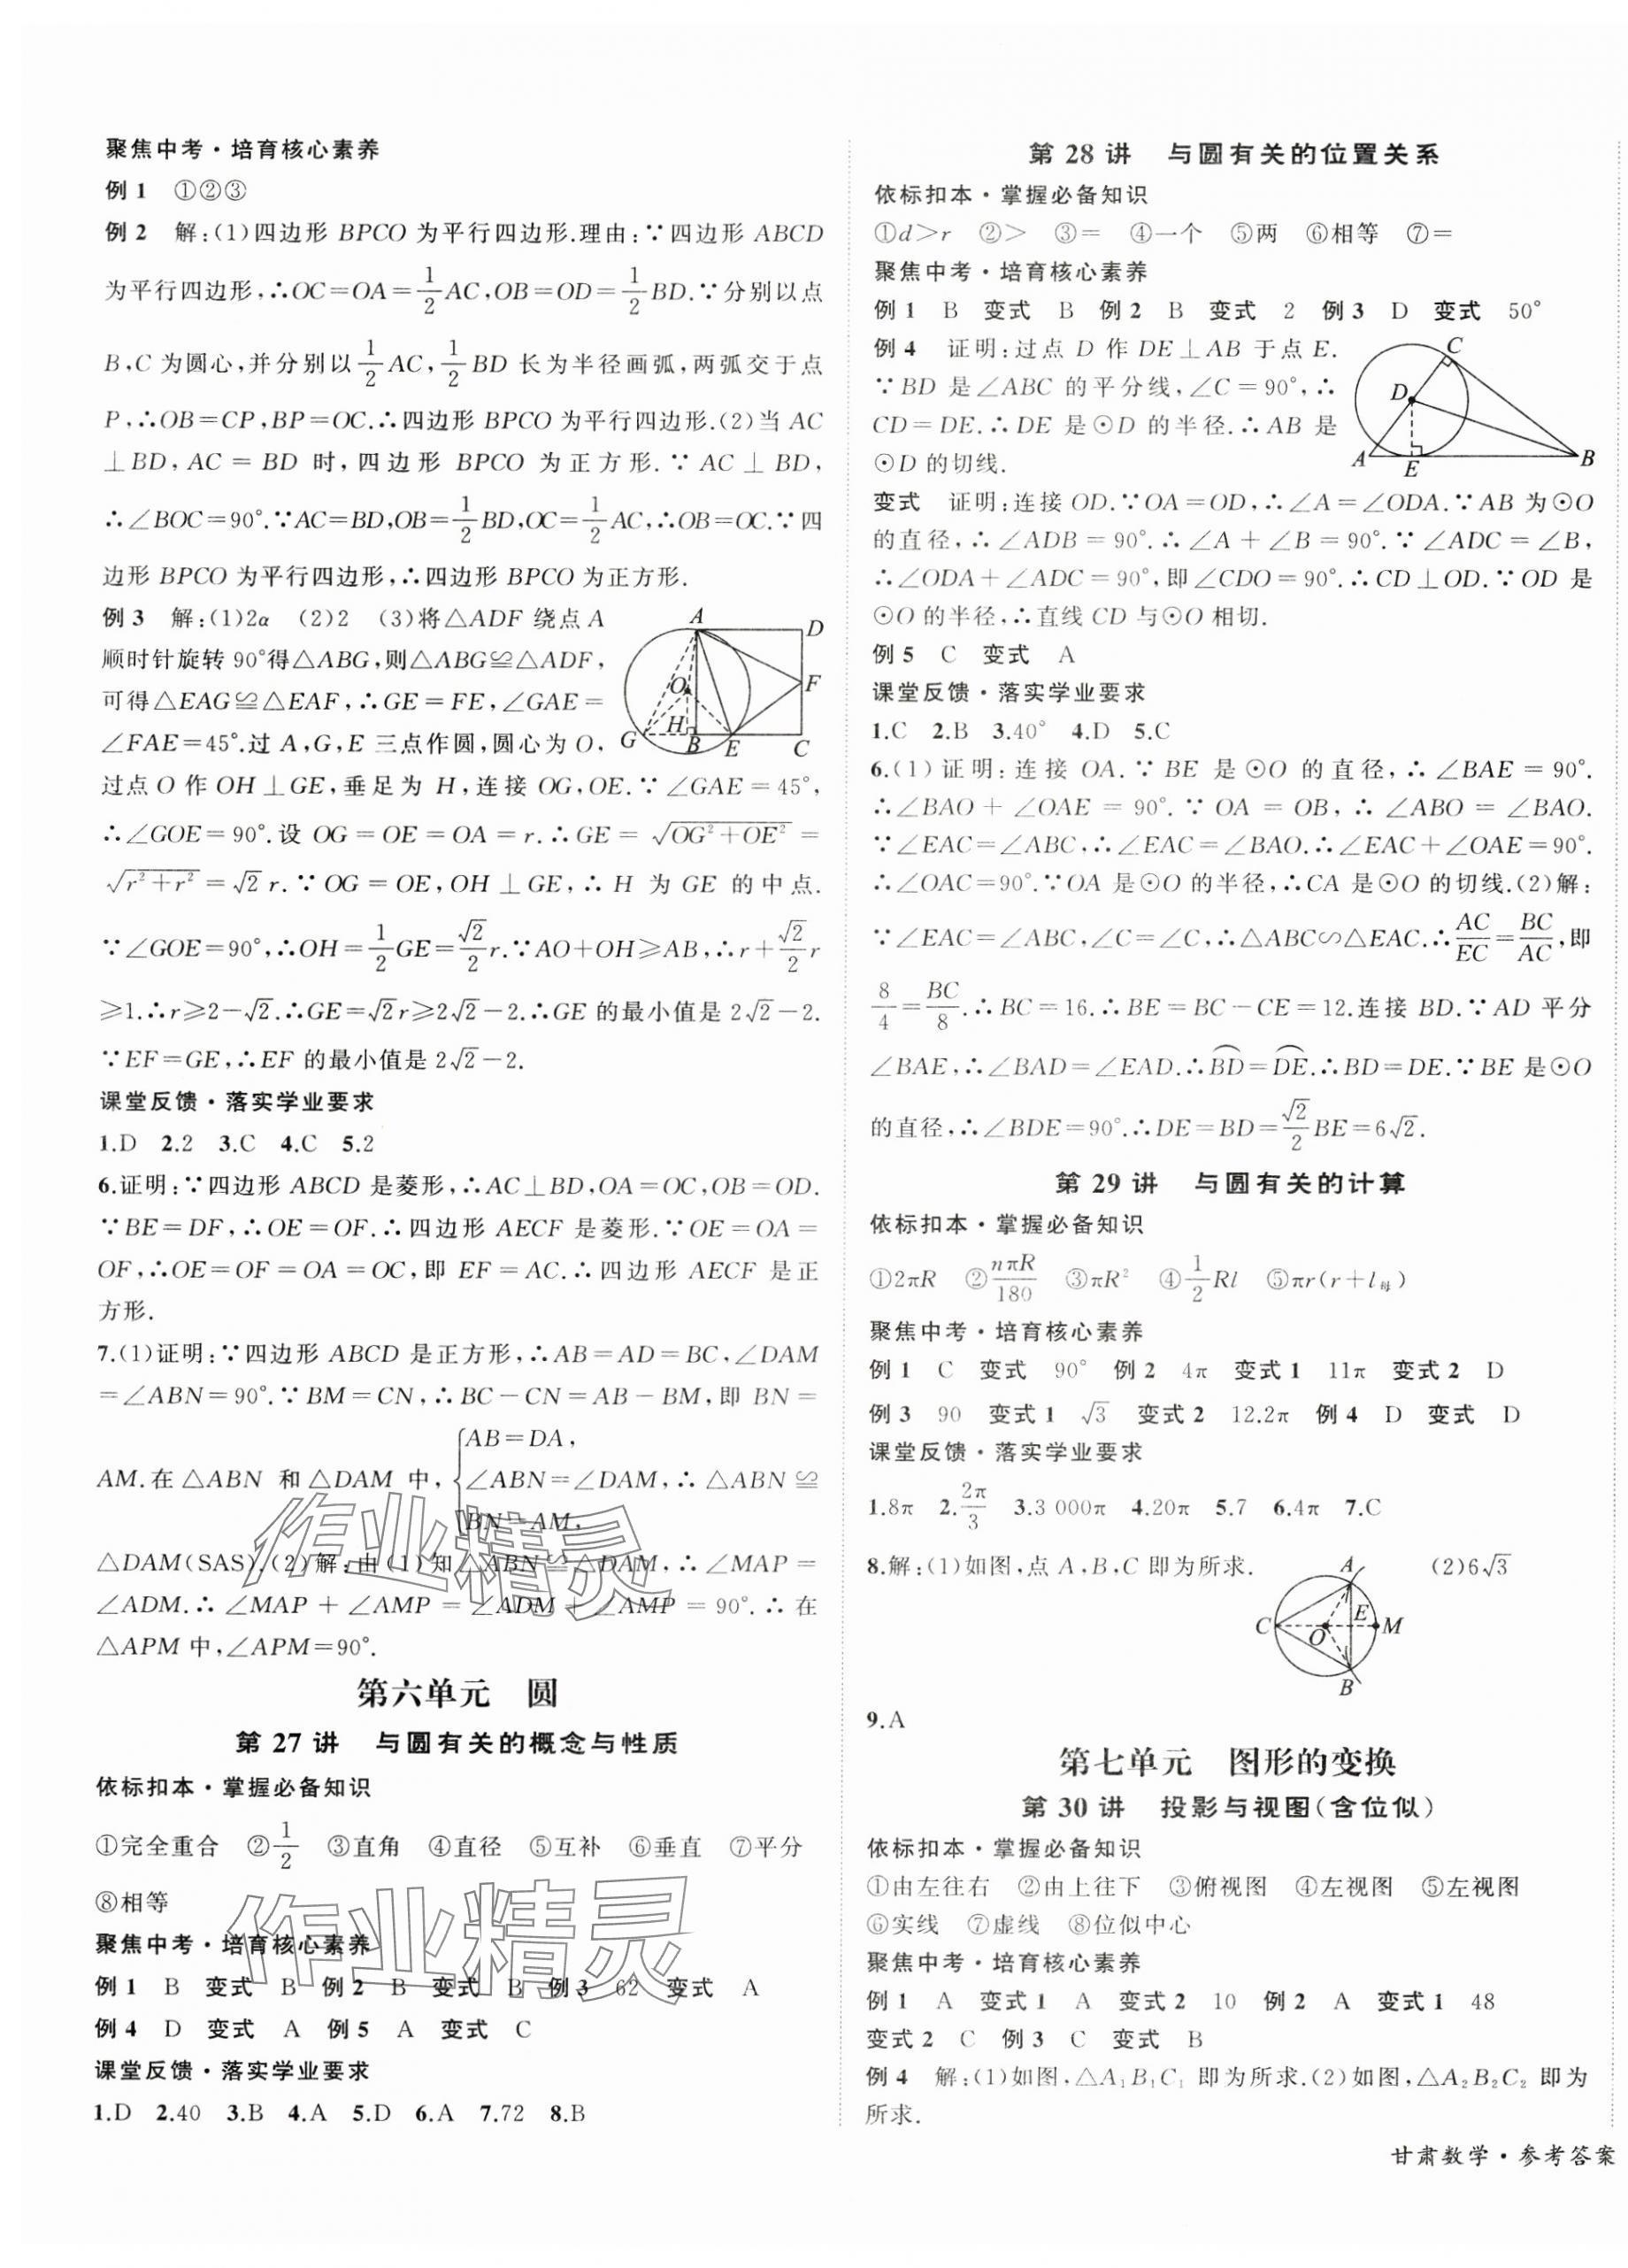 聚焦中考·培育核心素养
例1 ①②③
例2 解:(1)四边形 BPCO 为平行四边形.理由:∵四边形 ABCD
为平行四边形,∴OC=OA=1/2 AC,OB=OD=1/2 BD.∵分别以点
B,C 为圆心,并分别以 1/2 AC,1/2 BD 长为半径画弧,两弧交于点
P,∴OB=CP,BP=OC.∴四边形 BPCO 为平行四边形.(2)当 AC
⊥BD,AC=BD 时,四边形 BPCO 为正方形.∵AC⊥BD,
∴∠BOC=90°.∵AC=BD,OB=1/2 BD,OC=1/2 AC,∴OB=OC.∵四
边形 BPCO 为平行四边形,∴四边形 BPCO 为正方形.
例3 解:(1)2α (2)2 (3)将△ADF 绕点 A
顺时针旋转 90°得△ABG,则△ABG≌△ADF,
可得△EAG≌△EAF,∴GE=FE,∠GAE=
∠FAE=45°.过 A,G,E 三点作圆,圆心为 O,
A D O F H G B E C
过点 O 作 OH⊥GE,垂足为 H,连接 OG,OE.∵∠GAE=45°,
∴∠GOE=90°.设 OG=OE=OA=r.∴GE=√(OG²+OE²)=
√(r²+r²)=√2 r.∵OG=OE,OH⊥GE,∴H 为 GE 的中点.
∵∠GOE=90°,∴OH=1/2 GE=√2/2 r.∵AO+OH≥AB,∴r+√2/2 r
≥1.∴r≥2-√2.∴GE=√2 r≥2√2-2.∴GE 的最小值是 2√2-2.
∵EF=GE,∴EF 的最小值是 2√2-2.
课堂反馈·落实学业要求
1.D 2.2 3.C 4.C 5.2
6.证明:∵四边形 ABCD 是菱形,∴AC⊥BD,OA=OC,OB=OD.
∵BE=DF,∴OE=OF.∴四边形 AECF 是菱形.∵OE=OA=
OF,∴OE=OF=OA=OC,即 EF=AC.∴四边形 AECF 是正
方形.
7.(1)证明:∵四边形 ABCD 是正方形,∴AB=AD=BC,∠DAM
=∠ABN=90°.∵BM=CN,∴BC-CN=AB-BM,即 BN=
AM.在△ABN 和△DAM 中,{AB=DA,
∠ABN=∠DAM,∴△ABN≌
BN=AM,
△DAM(SAS).(2)解:由(1)知△ABN≌△DAM,∴∠MAP=
∠ADM.∴∠MAP+∠AMP=∠ADM+∠AMP=90°.∴在
△APM 中,∠APM=90°.
第六单元 圆
第27讲 与圆有关的概念与性质
依标扣本·掌握必备知识
①完全重合 ②1/2 ③直角 ④直径 ⑤互补 ⑥垂直 ⑦平分
⑧相等
聚焦中考·培育核心素养
例1 B 变式 B 例2 B 变式 B 例3 62 变式 A
例4 D 变式 A 例5 A 变式 C
课堂反馈·落实学业要求
1.D 2.40 3.B 4.A 5.D 6.A 7.72 8.B
作业精灵
作业精灵
第28讲 与圆有关的位置关系
依标扣本·掌握必备知识
①d>r ②> ③= ④一个 ⑤两 ⑥相等 ⑦=
聚焦中考·培育核心素养
例1 B 变式 B 例2 B 变式 2 例3 D 变式 50°
例4 证明:过点 D 作 DE⊥AB 于点 E.
∵BD 是∠ABC 的平分线,∠C=90°,∴
CD=DE.∴DE 是⊙D 的半径.∴AB 是
⊙D 的切线.
C D A E B
变式 证明:连接 OD.∵OA=OD,∴∠A=∠ODA.∵AB 为⊙O
的直径,∴∠ADB=90°.∴∠A+∠B=90°.∵∠ADC=∠B,
∴∠ODA+∠ADC=90°,即∠CDO=90°.∴CD⊥OD.∵OD 是
⊙O 的半径,∴直线 CD 与⊙O 相切.
例5 C 变式 A
课堂反馈·落实学业要求
1.C 2.B 3.40° 4.D 5.C
6.(1)证明:连接 OA.∵BE 是⊙O 的直径,∴∠BAE=90°.
∴∠BAO+∠OAE=90°.∵OA=OB,∴∠ABO=∠BAO.
∵∠EAC=∠ABC,∴∠EAC=∠BAO.∴∠EAC+∠OAE=90°.
∴∠OAC=90°.∵OA 是⊙O 的半径,∴CA 是⊙O 的切线.(2)解:
∵∠EAC=∠ABC,∠C=∠C,∴△ABC∽△EAC.∴AC/EC=BC/AC,即
8/4=BC/8.∴BC=16.∴BE=BC-CE=12.连接 BD.∵AD 平分
∠BAE,∴∠BAD=∠EAD.∴⌒BD=⌒DE.∴BD=DE.∵BE 是⊙O
的直径,∴∠BDE=90°.∴DE=BD=√2/2 BE=6√2.
第29讲 与圆有关的计算
依标扣本·掌握必备知识
①2πR ②nπR/180 ③πR² ④1/2 Rl ⑤πr(r+l母)
聚焦中考·培育核心素养
例1 C 变式 90° 例2 4π 变式1 11π 变式2 D
例3 90 变式1 √3 变式2 12.2π 例4 D 变式 D
课堂反馈·落实学业要求
1.8π 2.2π/3 3.3 000π 4.20π 5.7 6.4π 7.C
8.解:(1)如图,点 A,B,C 即为所求. (2)6√3
A C O E M B
9.A
第七单元 图形的变换
第30讲 投影与视图(含位似)
依标扣本·掌握必备知识
①由左往右 ②由上往下 ③俯视图 ④左视图 ⑤左视图
⑥实线 ⑦虚线 ⑧位似中心
聚焦中考·培育核心素养
例1 A 变式1 A 变式2 10 例2 A 变式1 48
变式2 C 例3 C 变式 B
例4 解:(1)如图,△A₁B₁C₁ 即为所求.(2)如图,△A₂B₂C₂ 即为
所求.
甘肃数学·参考答案